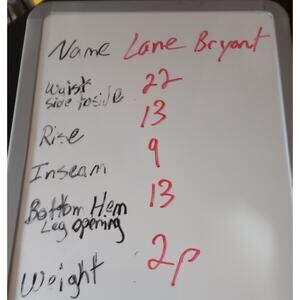 Name Lane Bryant
Waist
side to side 22
Rise 13
Inseam 9
Bottom Hem 13
Leg opening
Weight 2p